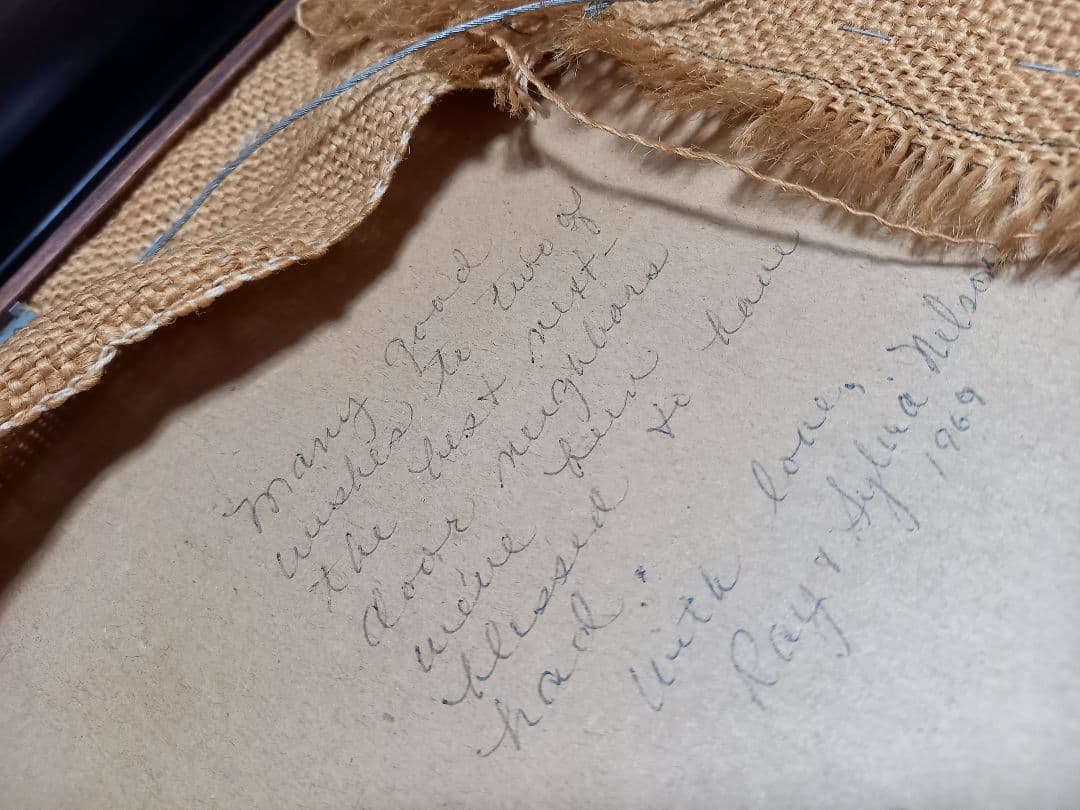 Many good
wishes to two of
the best next-
door neighbors
we've been
blessed to have
had.
With love,
Ray & Sylvia Nelson
1969